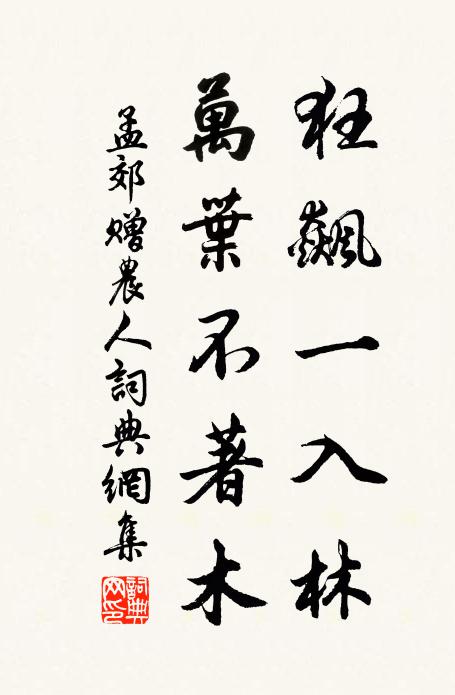 狂飆一入林
萬葉不著木
孟郊贈農人詞典網集
詞典網印